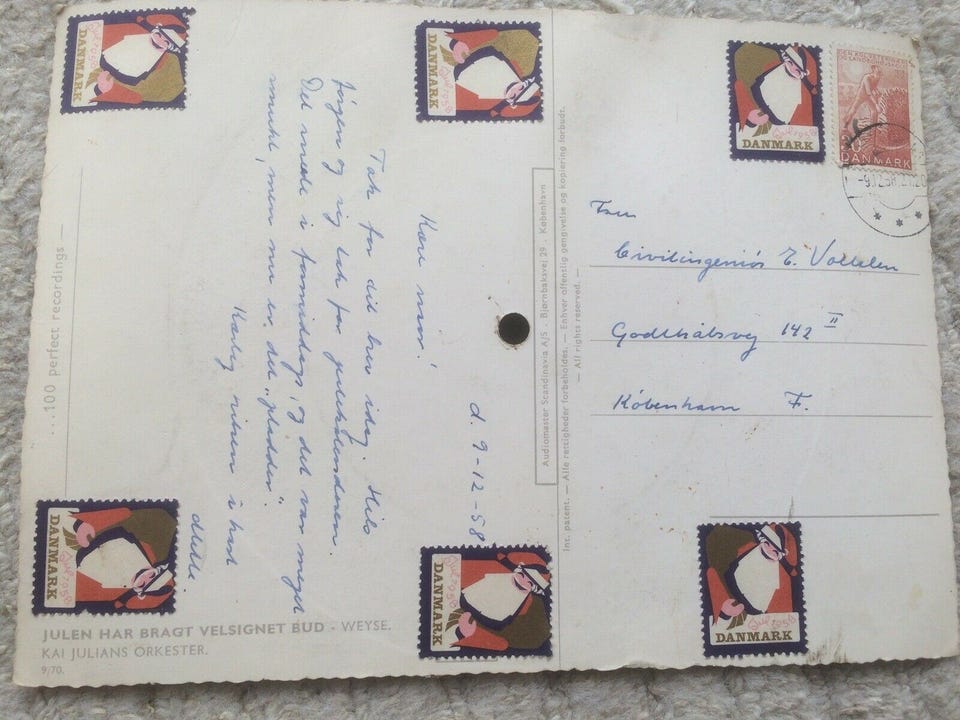 d. 9-12-58
Kære mor!
Tak for dit brev idag. Hils
Jørgen og sig tak for julekalenderen.
Det sneede i formiddags, og det var meget
smukt, men nu er det „pladder”.
Kærlig hilsen i hast
...100 perfect recordings —
JULEN HAR BRAGT VELSIGNET BUD - WEYSE.
KAI JULIANS ORKESTER.
9/70.
Audiomaster Scandinavia A/S . Bjørnbaksvej 29 . København
Int. patent. — Alle rettigheder forbeholdes. — Enhver offentlig gengivelse og kopiering forbudt.
— All rights reserved. —
Fru
Civilingeniør E. Voltelen
Godthåbsvej 142 II
København F.
DANMARK
Jul 1958
DANMARK
Jul 1958
DANMARK
Jul 1958
DANMARK
Jul 1958
DANMARK
Jul 1958
DANMARK
Jul 1958
DANMARK